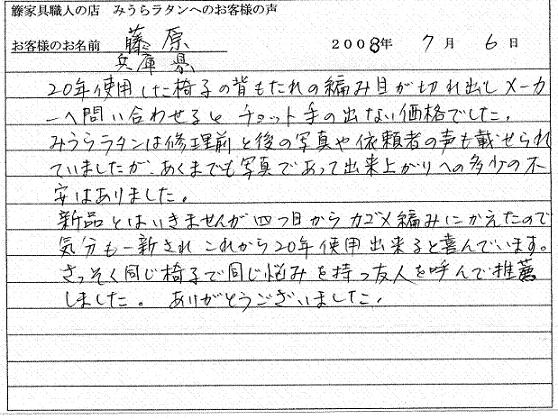 籐家具職人の店 みうらラタンへのお客様の声
お客様のお名前 藤原 2008年 7月 6日
兵庫県
20年使用した椅子の背もたれの編み目が切れ出しメーカ
ーへ問い合わせると チョット手の出ない価格でした。
みうらラタンは修理前と後の写真や依頼者の声も載せられ
ていましたが、あくまでも写真であって出来上がりへの多少の不
安はありました。
新品とはいきませんが四つ目からカゴメ編みにかえたので
気分も一新され これから20年使用出来ると喜んでいます。
さっそく同じ椅子で同じ悩みを持つ友人を呼んで推薦
しました。 ありがとうございました。